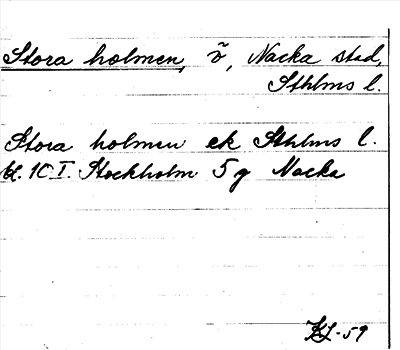 Stora holmen, ö, Nacka stad,
Sthlms l.
Stora holmen ek Sthlms l.
bl. 10 I. Stockholm 5 g Nacka
KL-59